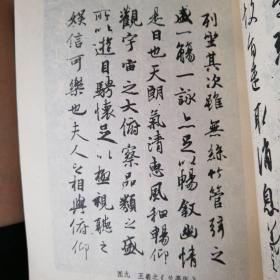 列坐其次雖無絲竹管弦之
盛一觴一詠亦足以暢敘幽情
是日也天朗氣清惠風和暢仰
觀宇宙之大俯察品類之盛
所以遊目騁懷足以極視聽之
娛信可樂也夫人之相與俯仰
图九 王羲之《兰亭序》